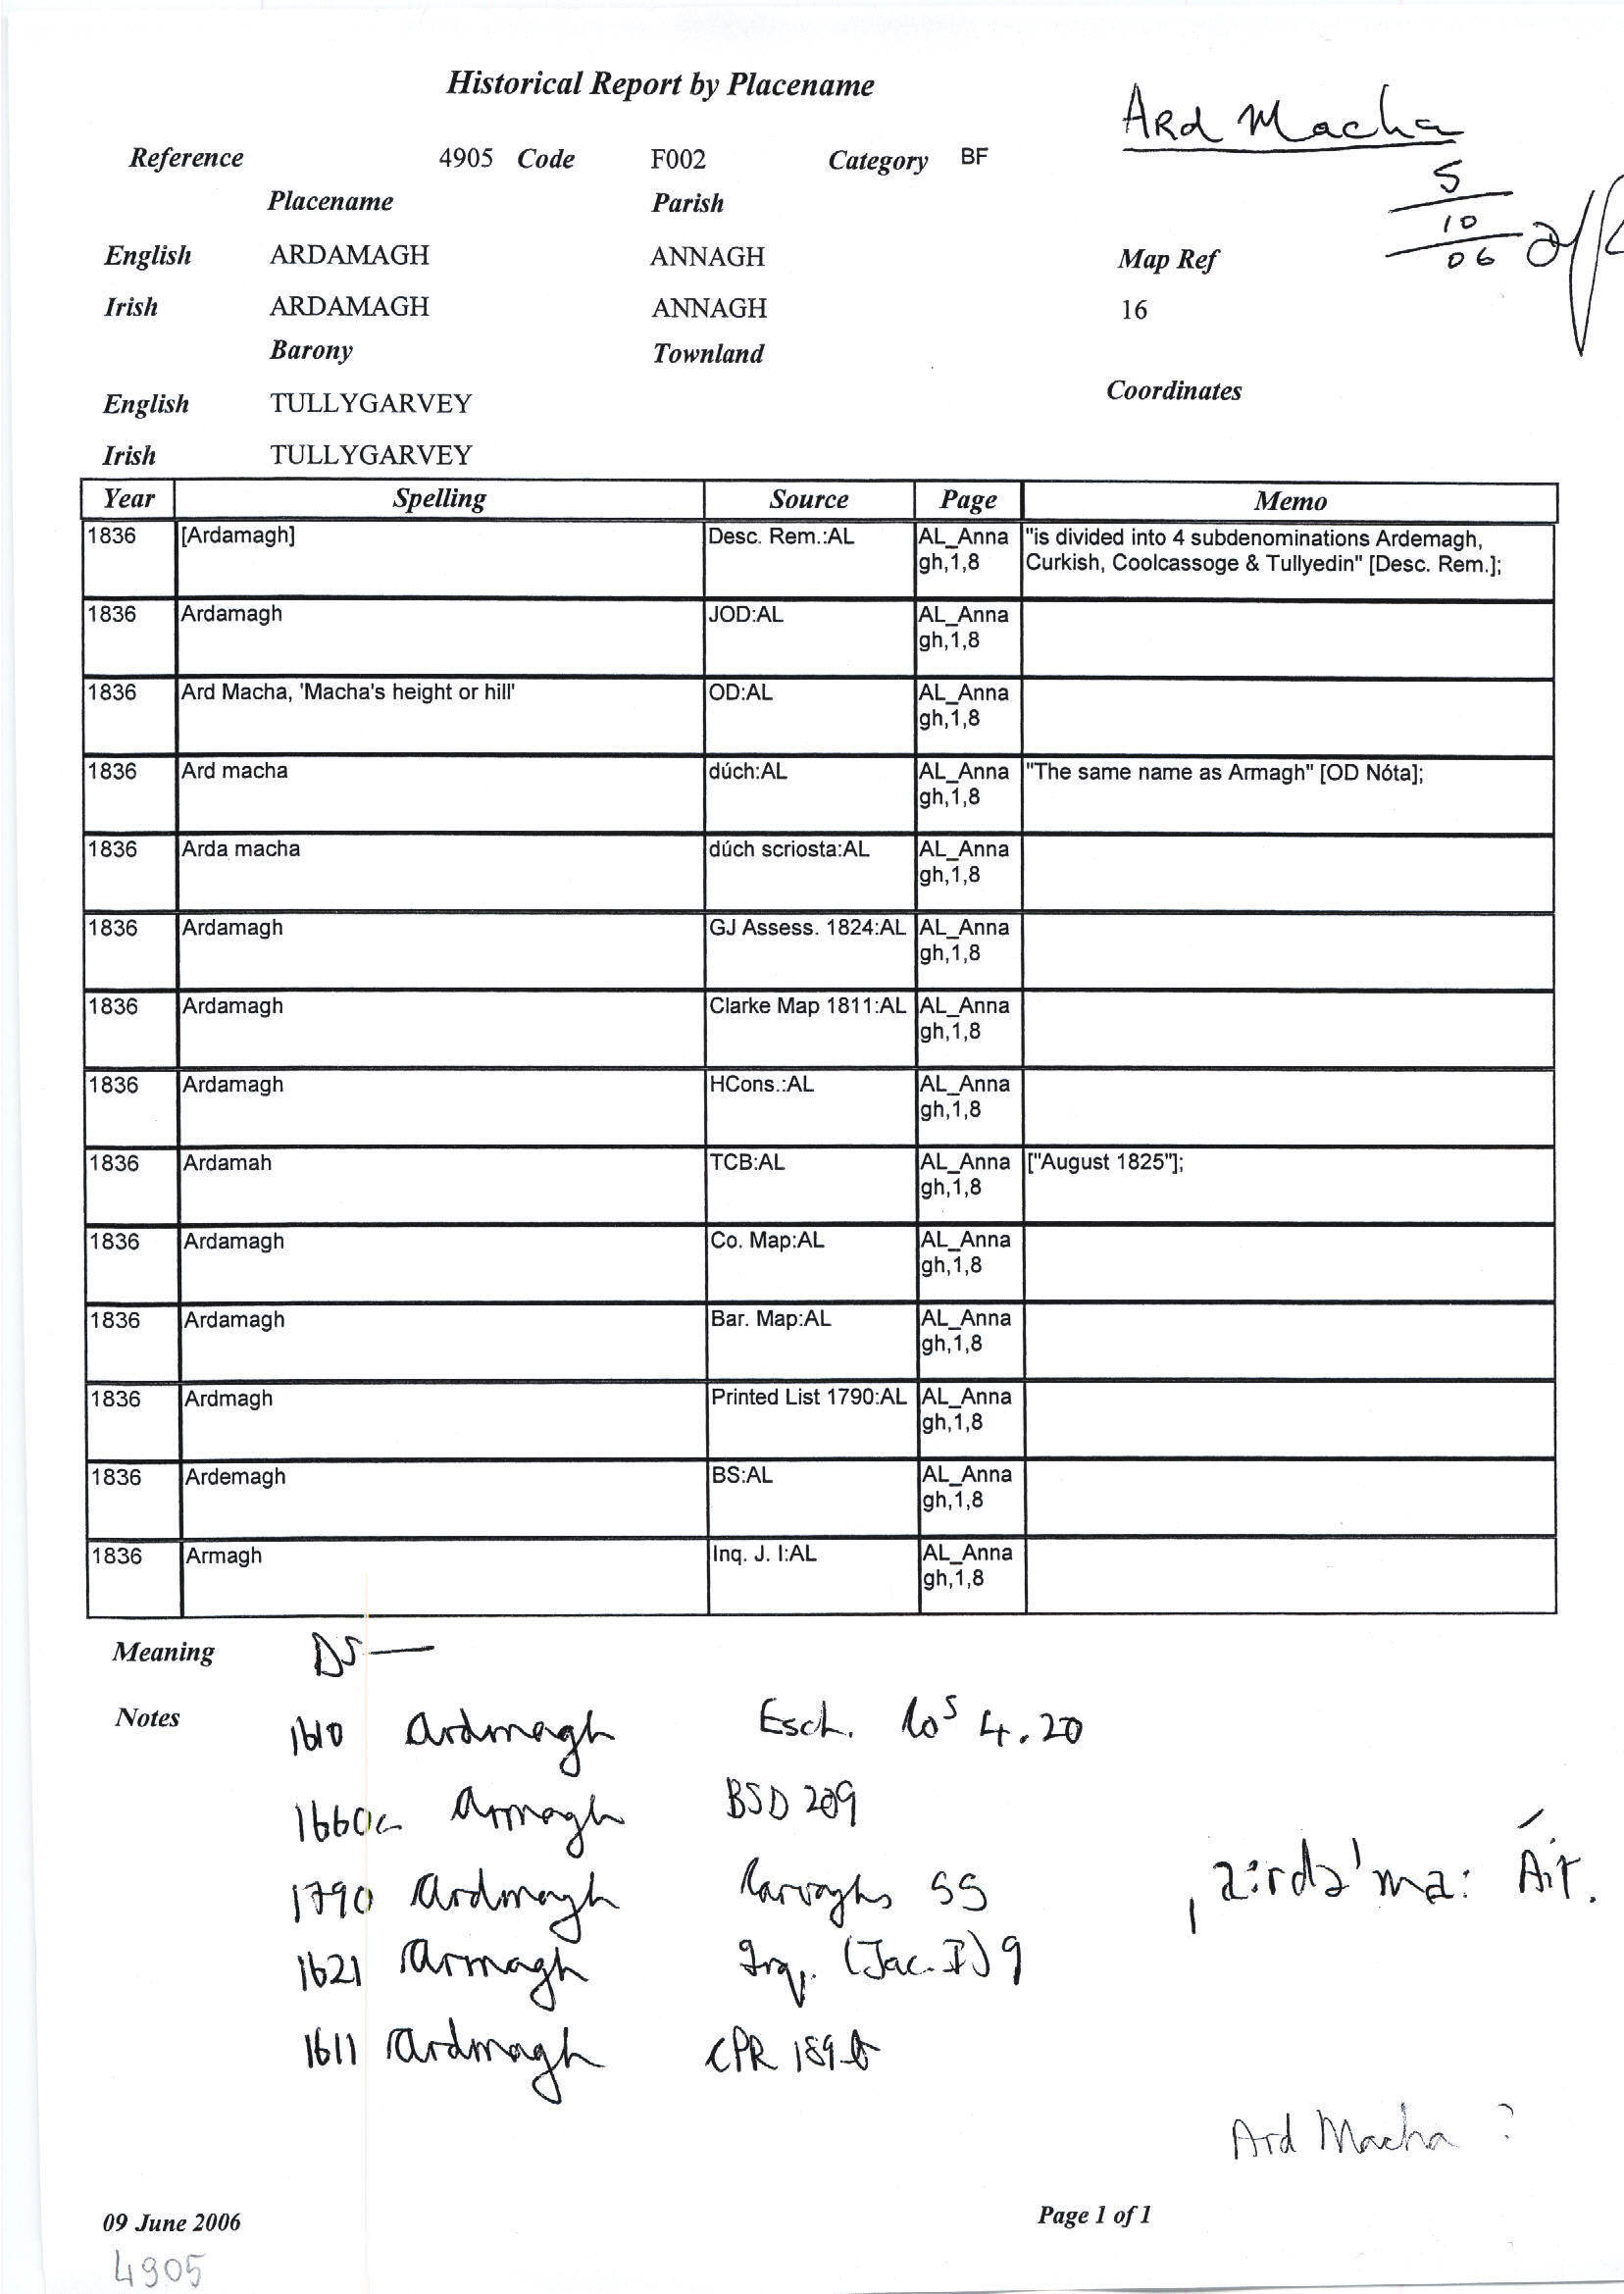 Historical Report by Placename
Ard Macha
Reference 4905 Code F002 Category BF
5
10
06
Placename Parish
English ARDAMAGH ANNAGH Map Ref
Irish ARDAMAGH ANNAGH 16
Barony Townland
Coordinates
English TULLYGARVEY
Irish TULLYGARVEY
Year Spelling Source Page Memo
1836 [Ardamagh] Desc. Rem.:AL AL_Anna "is divided into 4 subdenominations Ardemagh,
gh,1,8 Curkish, Coolcassoge & Tullyedin" [Desc. Rem.];
1836 Ardamagh JOD:AL AL_Anna
gh,1,8
1836 Ard Macha, 'Macha's height or hill' OD:AL AL_Anna
gh,1,8
1836 Ard macha dúch:AL AL_Anna "The same name as Armagh" [OD Nóta];
gh,1,8
1836 Arda macha dúch scriosta:AL AL_Anna
gh,1,8
1836 Ardamagh GJ Assess. 1824:AL AL_Anna
gh,1,8
1836 Ardamagh Clarke Map 1811:AL AL_Anna
gh,1,8
1836 Ardamagh HCons.:AL AL_Anna
gh,1,8
1836 Ardamah TCB:AL AL_Anna ["August 1825"];
gh,1,8
1836 Ardamagh Co. Map:AL AL_Anna
gh,1,8
1836 Ardamagh Bar. Map:AL AL_Anna
gh,1,8
1836 Ardmagh Printed List 1790:AL AL_Anna
gh,1,8
1836 Ardemagh BS:AL AL_Anna
gh,1,8
1836 Armagh Inq. J. I:AL AL_Anna
gh,1,8
Meaning DS —
Notes
1610 Ardmagh Esch. Co⁵ 4.20
1660c Armagh BSD 209
1790 Ardmagh 55
ˌa:rdə'ma: Áit.
1621 Armagh Inq. (Jac. I) 9
1611 Ardmagh CPR 189
Ard Macha ?
09 June 2006 Page 1 of 1
4905